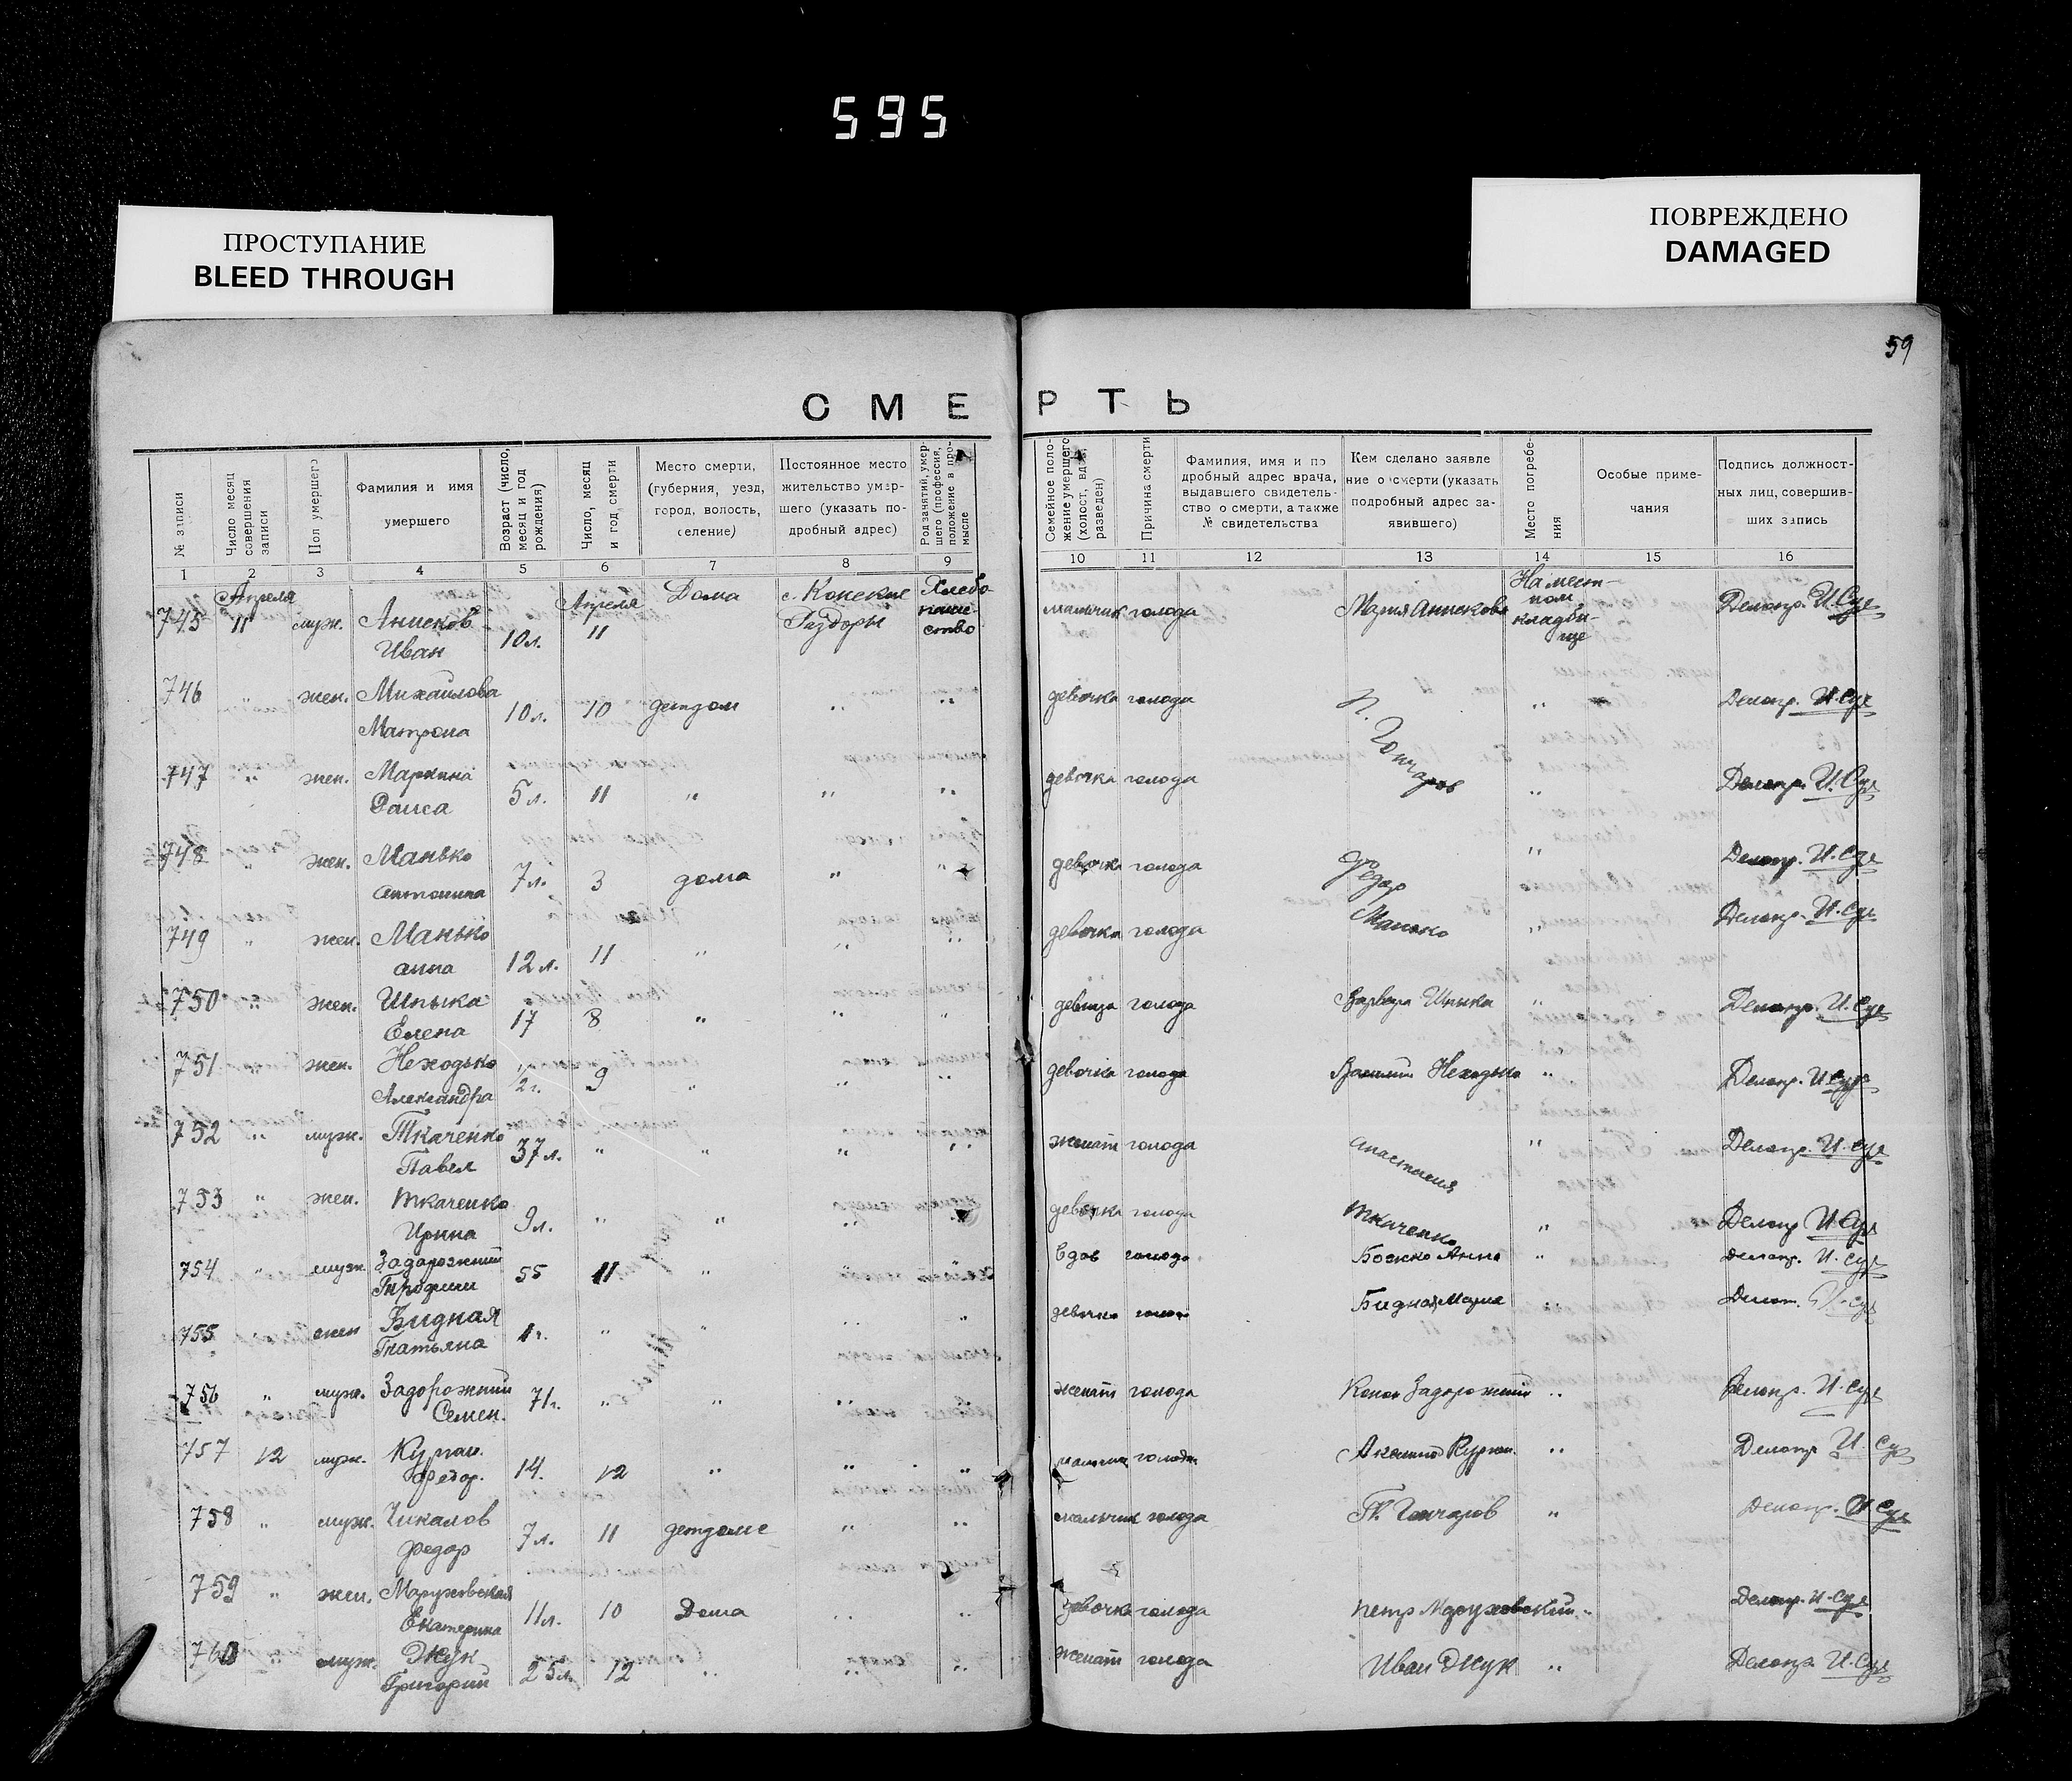 595
ПРОСТУПАНИЕ
BLEED THROUGH
ПОВРЕЖДЕНО
DAMAGED
59
СМЕРТЬ
№ записи
Число месяц совершения записи
Пол умершего
Фамилия и имя умершего
Возраст (число, месяц и год рождения)
Число, месяц и год смерти
Место смерти, (губерния, уезд, город, волость, селение)
Постоянное место жительство умершего (указать подробный адрес)
Род занятий, умершего (профессия, положение в промысле
Семейное положение умершего (холост, вдов, разведен)
Причина смерти
Фамилия, имя и подробный адрес врача, выдавшего свидетельство о смерти, а также № свидетельства
Кем сделано заявление о смерти (указать подробный адрес заявившего)
Место погребения
Особые примечания
Подпись должностных лиц, совершивших запись
1 2 3 4 5 6 7 8 9 10 11 12 13 14 15 16
745 Апреля 11 муж. Анисков Иван 10л. Апреля 11 Дома с. Конские Раздоры Хлебопашество мальчик голода Мария Анискова На местном кладбище Делопр. И.Сук
746 " жен. Михайлова Матрона 10л. 10 детдом " " девочка голода П. Гончаров " Делопр. И.Сук
747 " жен. Маркина 5л. 11 " " " девочка голода " Делопр. И.Сук
748 жен. Манько Антонина 7л. 3 дома " " девочка голода Федор Манько " Делопр. И.Сук
749 " жен. Манько Анна 12л. 11 " " " девочка голода " Делопр. И.Сук
750 " жен. Шпыка Елена 17 8 " " " девица голода Варвара Шпыка " Делопр. И.Сук
751 " жен. Неходько Александра 1/2г. 9 " " " девочка голода Василий Неходько " Делопр. И.Сук
752 " муж. Ткаченко Павел 37л. " " " " женат голода Анастасия Ткаченко " Делопр. И.Сук
753 " жен. Ткаченко Ирина 9л. " " " девочка голода " Делопр И.Сук
754 " муж Задорожний Трофим 55 11 " " вдов голода Боенко Анна " Делопр. И.Сук
755 " жен Бидная Татьяна 1г. " " " " девочка голода Бидная Мария " Делоп. И.Сук
756 " муж. Задорожний Семен. 71г. " " " " женат голода Конон Задорожний " Делопр. И.Сук
757 12 муж. Федор. 14. 12 " " " мальчик голода " Делопр И.Сук
758 " муж. Чикалов Федор 7л. 11 детдоме " " мальчик голода П. Гончаров " Делопр. И.Сук
759 " жен. Маруховская Екатерина 11л. 10 Дома " " девочка голода Петр Маруховский " Делопр. И.Сук
760 муж. Жук Григорий 25л. 12 " " " женат голода Иван Жук " Делопр. И.Сук